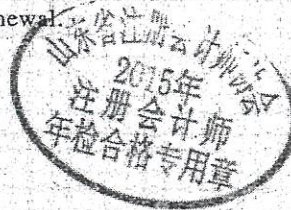 newal.
山东省注册会计师协会
2015年
注册会计师
年检合格专用章